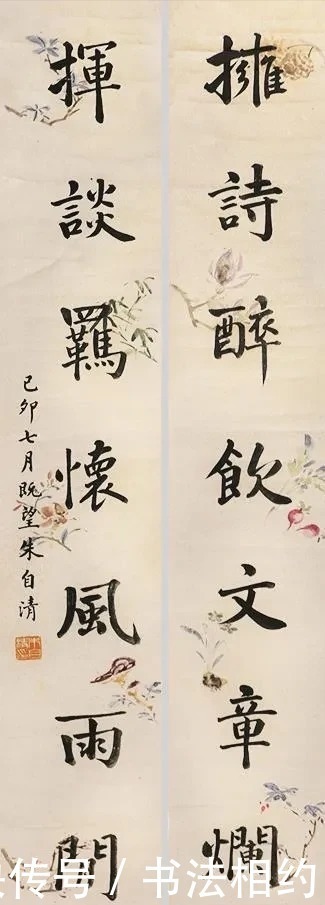 擁詩醉飲文章爛
揮談羈懷風雨
己卯七月既望朱自清
传号 / 书法相约